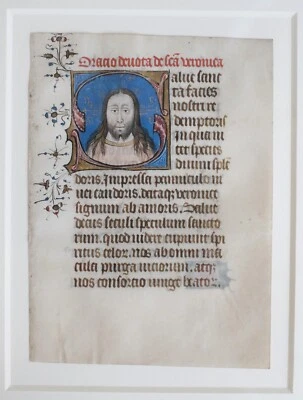 Oracio deuota de scā veronica
Salue sanc
ta facies
nostri re
demptoris
In qua ni
tet species
diuini splē
doris. Impressa penniculo in
uei candoris. dataq; veronice
signum ab amoris. Salue
decus seculi speculum sancto
rum. quod uidere cupiunt spi
ritus celor. nos ab omni ma
cula purga uiciorum. atq;
nos consorcio iunge beator.